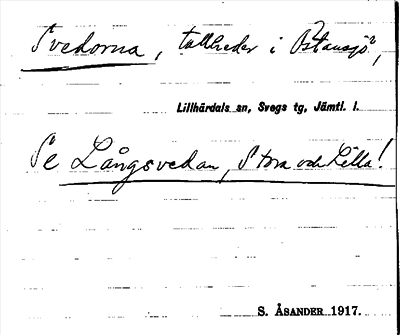 Svedorna, tallheder i Östansjö,
Lillhärdals sn, Svegs tg, Jämtl. l.
Se Långsvedan, Stora och Lilla!
S. ÅSANDER 1917.